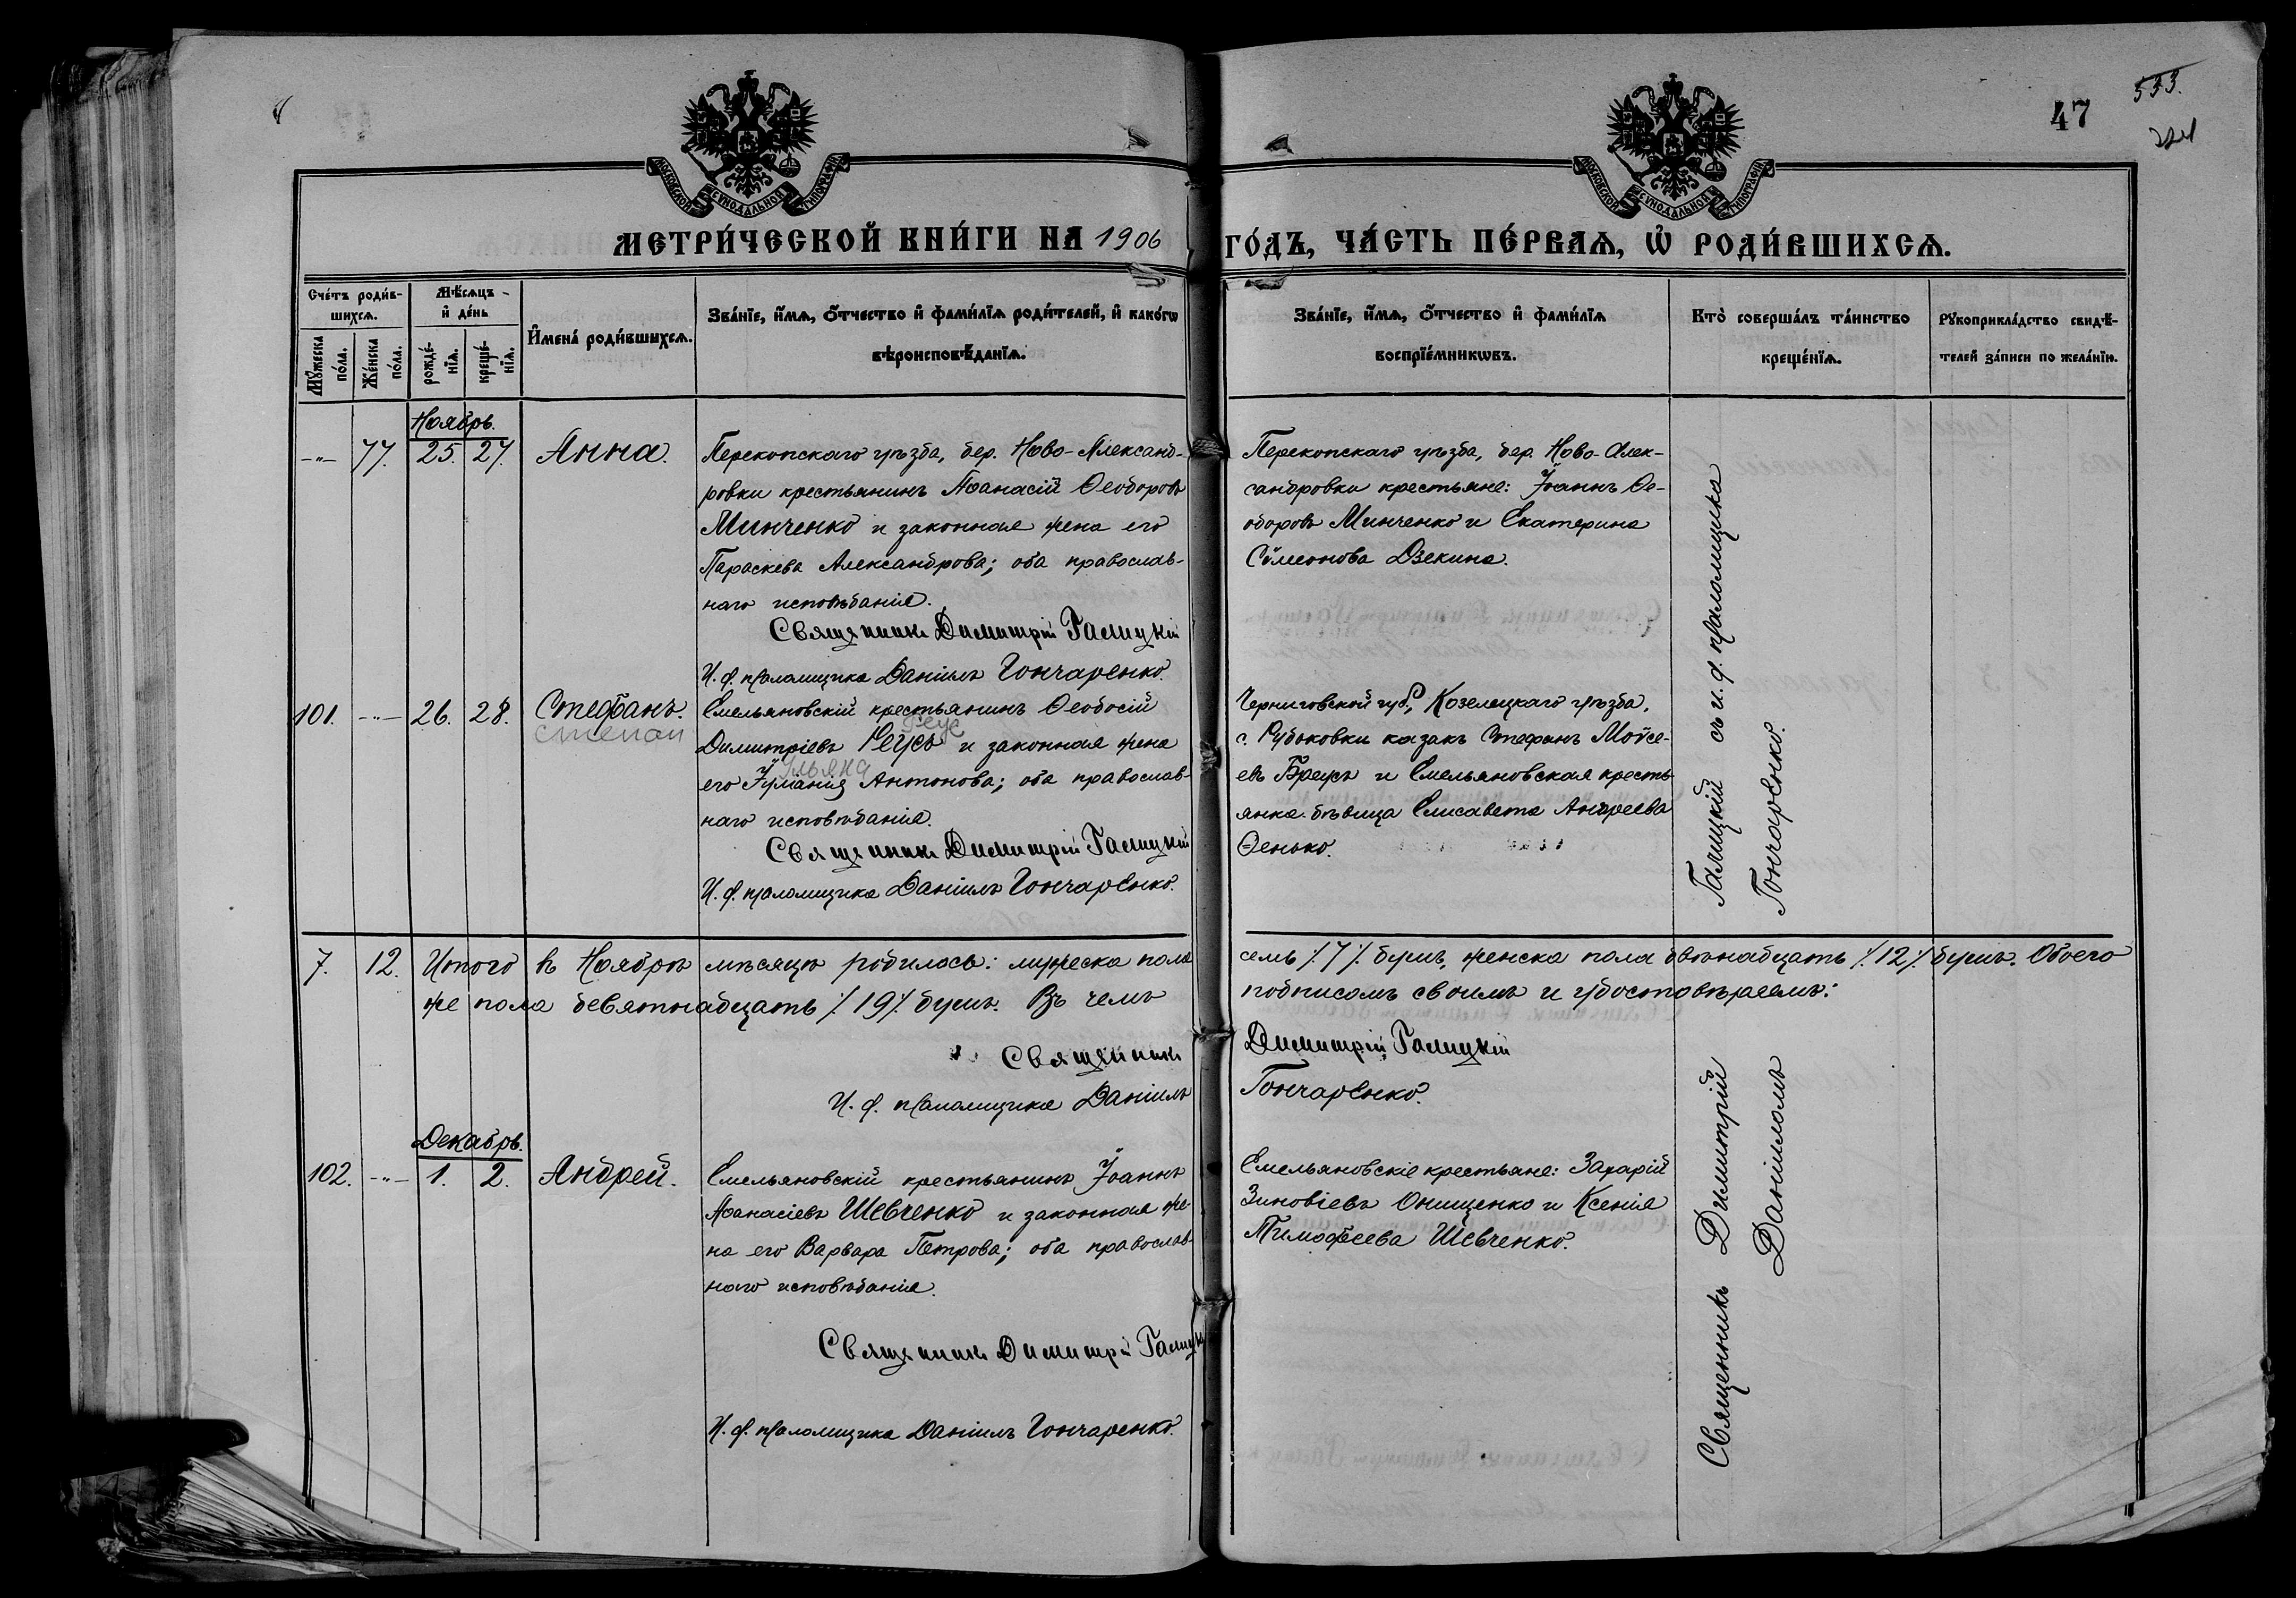 47
533.
МОСКОВСКОЙ СѴНОДАЛЬНОЙ ТИПОГРАФІИ
МОСКОВСКОЙ СѴНОДАЛЬНОЙ ТИПОГРАФІИ
МЕТРИ́ЧЕСКОЙ КНИ́ГИ НА 1906 ГО́ДЪ, ЧА́СТЬ ПЕ́РВАѦ, Ѡ҆ РОДИ́ВШИХСѦ.
Сче́тъ роди́в-
шихсѧ.
Мꙋ́жеска по́ла.
Же́нска по́ла.
Мѣ́сѧцъ
и҆ де́нь
рожде́-
нїѧ.
креще́-
нїѧ.
И҆мена̀ роди́вшихсѧ.
Зва́нїе, и҆́мѧ, ѻ҆́тчество и҆ фами́лїѧ роди́телей, и҆ како́гѡ
вѣроисповѣ́данїѧ.
Зва́нїе, и҆́мѧ, ѻ҆́тчество и҆ фами́лїѧ
воспрїе́мникѡвъ.
Кто̀ соверша́лъ та́инство
креще́нїѧ.
Рꙋкоприкла́дство свидѣ́-
телей за́писи по жела́нїю.
Ноябрь.
-"- 77. 25. 27. Анна.
Перекопскаго уѣзда, дер. Ново-Александ-
ровки крестьянинъ Аѳанасій Ѳеодоровъ
Минченко и законная жена его
Параскева Александрова; оба православ-
наго исповѣданія.
Священникъ Димитрій Галицкій
И. ф. псаломщика Даніилъ Гончаренко.
Перекопскаго уѣзда, дер. Ново-Алек-
сандровки крестьяне: Іоаннъ Ѳе-
одоровъ Минченко и Екатерина
Сѵмеонова Дзекина.
101. -"- 26. 28. Стефанъ.
Степан
Емельяновскій крестьянинъ Ѳеодосій
Реус
Димитріевъ Реусъ и законная жена
Ульяна
его Іуліанія Антонова; оба православ-
наго исповѣданія.
Священникъ Димитрій Галицкій
И. ф. псаломщика Даніилъ Гончаренко.
Черниговской губ., Козелецкаго уѣзда,
с. Рудьковки казакъ Стефанъ Моѵсе-
евъ Бреусъ и Емельяновская кресть-
янка дѣвица Елисавета Андреева
Ѳенько.
Священникъ Димитрій Галицкій съ и. ф. псаломщика
Даніиломъ Гончаренко.
7. 12. Итого въ Ноябрѣ мѣсяцѣ родилось: мужеска пола семь ⁒7⁒ душъ, женска пола двѣнадцать ⁒12⁒ душъ. Обоего
же пола девятнадцать ⁒19⁒ душъ. Въ чемъ подписомъ своимъ и удостовѣряемъ:
Священникъ Димитрій Галицкій
И. ф. псаломщика Даніилъ Гончаренко.
Декабрь.
102. -"- 1. 2. Андрей.
Емельяновскій крестьянинъ Іоаннъ
Аѳанасіевъ Шевченко и законная же-
на его Варвара Петрова; оба православ-
наго исповѣданія.
Священникъ Димитрій Галицк
И. ф. псаломщика Даніилъ Гончаренко.
Емельяновскіе крестьяне: Захарій
Зиновіевъ Онищенко и Ксенія
Тимофеева Шевченко.